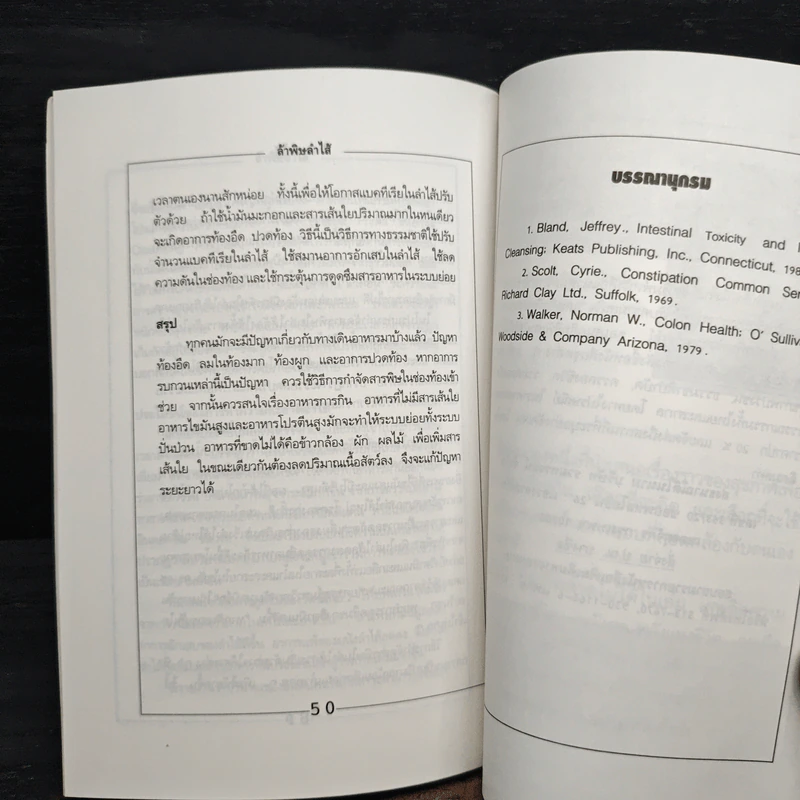 ล้างพิษลำไส้
เวลาตนเองนานสักหน่อย ทั้งนี้เพื่อให้โอกาสแบคทีเรียในลำไส้ปรับ
ตัวด้วย ถ้าใช้น้ำมันมะกอกและสารเส้นใยปริมาณมากในหนเดียว
จะเกิดอาการท้องอืด ปวดท้อง วิธีนี้เป็นวิธีการทางธรรมชาติใช้ปรับ
จำนวนแบคทีเรียในลำไส้ ใช้สมานอาการอักเสบในลำไส้ ใช้ลด
ความดันในช่องท้อง และใช้กระตุ้นการดูดซึมสารอาหารในระบบย่อย
สรุป
ทุกคนมักจะมีปัญหาเกี่ยวกับทางเดินอาหารมาบ้างแล้ว ปัญหา
ท้องอืด ลมในท้องมาก ท้องผูก และอาการปวดท้อง หากอาการ
รบกวนเหล่านี้เป็นปัญหา ควรใช้วิธีการกำจัดสารพิษในช่องท้องเข้า
ช่วย จากนั้นควรสนใจเรื่องอาหารการกิน อาหารที่ไม่มีสารเส้นใย
อาหารไขมันสูงและอาหารโปรตีนสูงมักจะทำให้ระบบย่อยทั้งระบบ
ปั่นป่วน อาหารที่ขาดไม่ได้คือข้าวกล้อง ผัก ผลไม้ เพื่อเพิ่มสาร
เส้นใย ในขณะเดียวกันต้องลดปริมาณเนื้อสัตว์ลง จึงจะแก้ปัญหา
ระยะยาวได้
50
บรรณานุกรม
1. Bland, Jeffrey., Intestinal Toxicity and
Cleansing: Keats Publishing, Inc., Connecticut,
2. Scolt, Cyrie., Constipation Common
Richard Clay Ltd., Suffolk, 1969.
3. Walker, Norman W., Colon Health: O'
Woodside & Company Arizona, 1979.